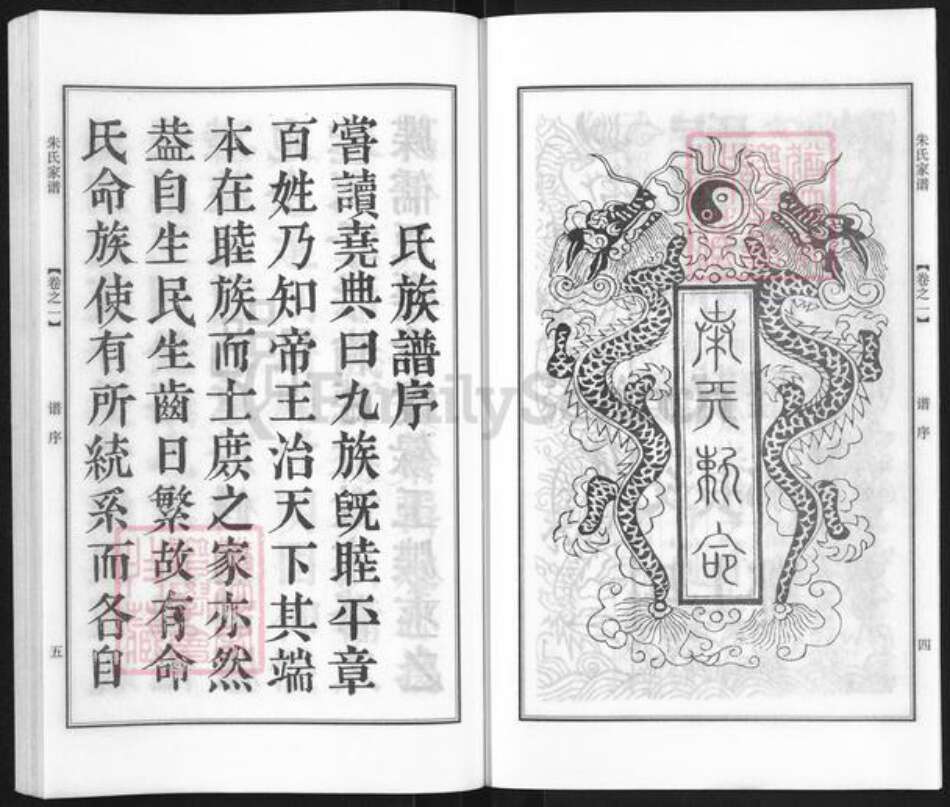 朱氏家谱
【卷之一】
谱序
四
奉天敕命
氏族譜序
嘗讀堯典曰九族既睦平章
百姓乃知帝王治天下其端
本在睦族而士庶之家亦然
葢自生民生齒日繁故有命
氏命族使有所統系而各自
朱氏家谱
【卷之一】
谱序
五
FamilySearch